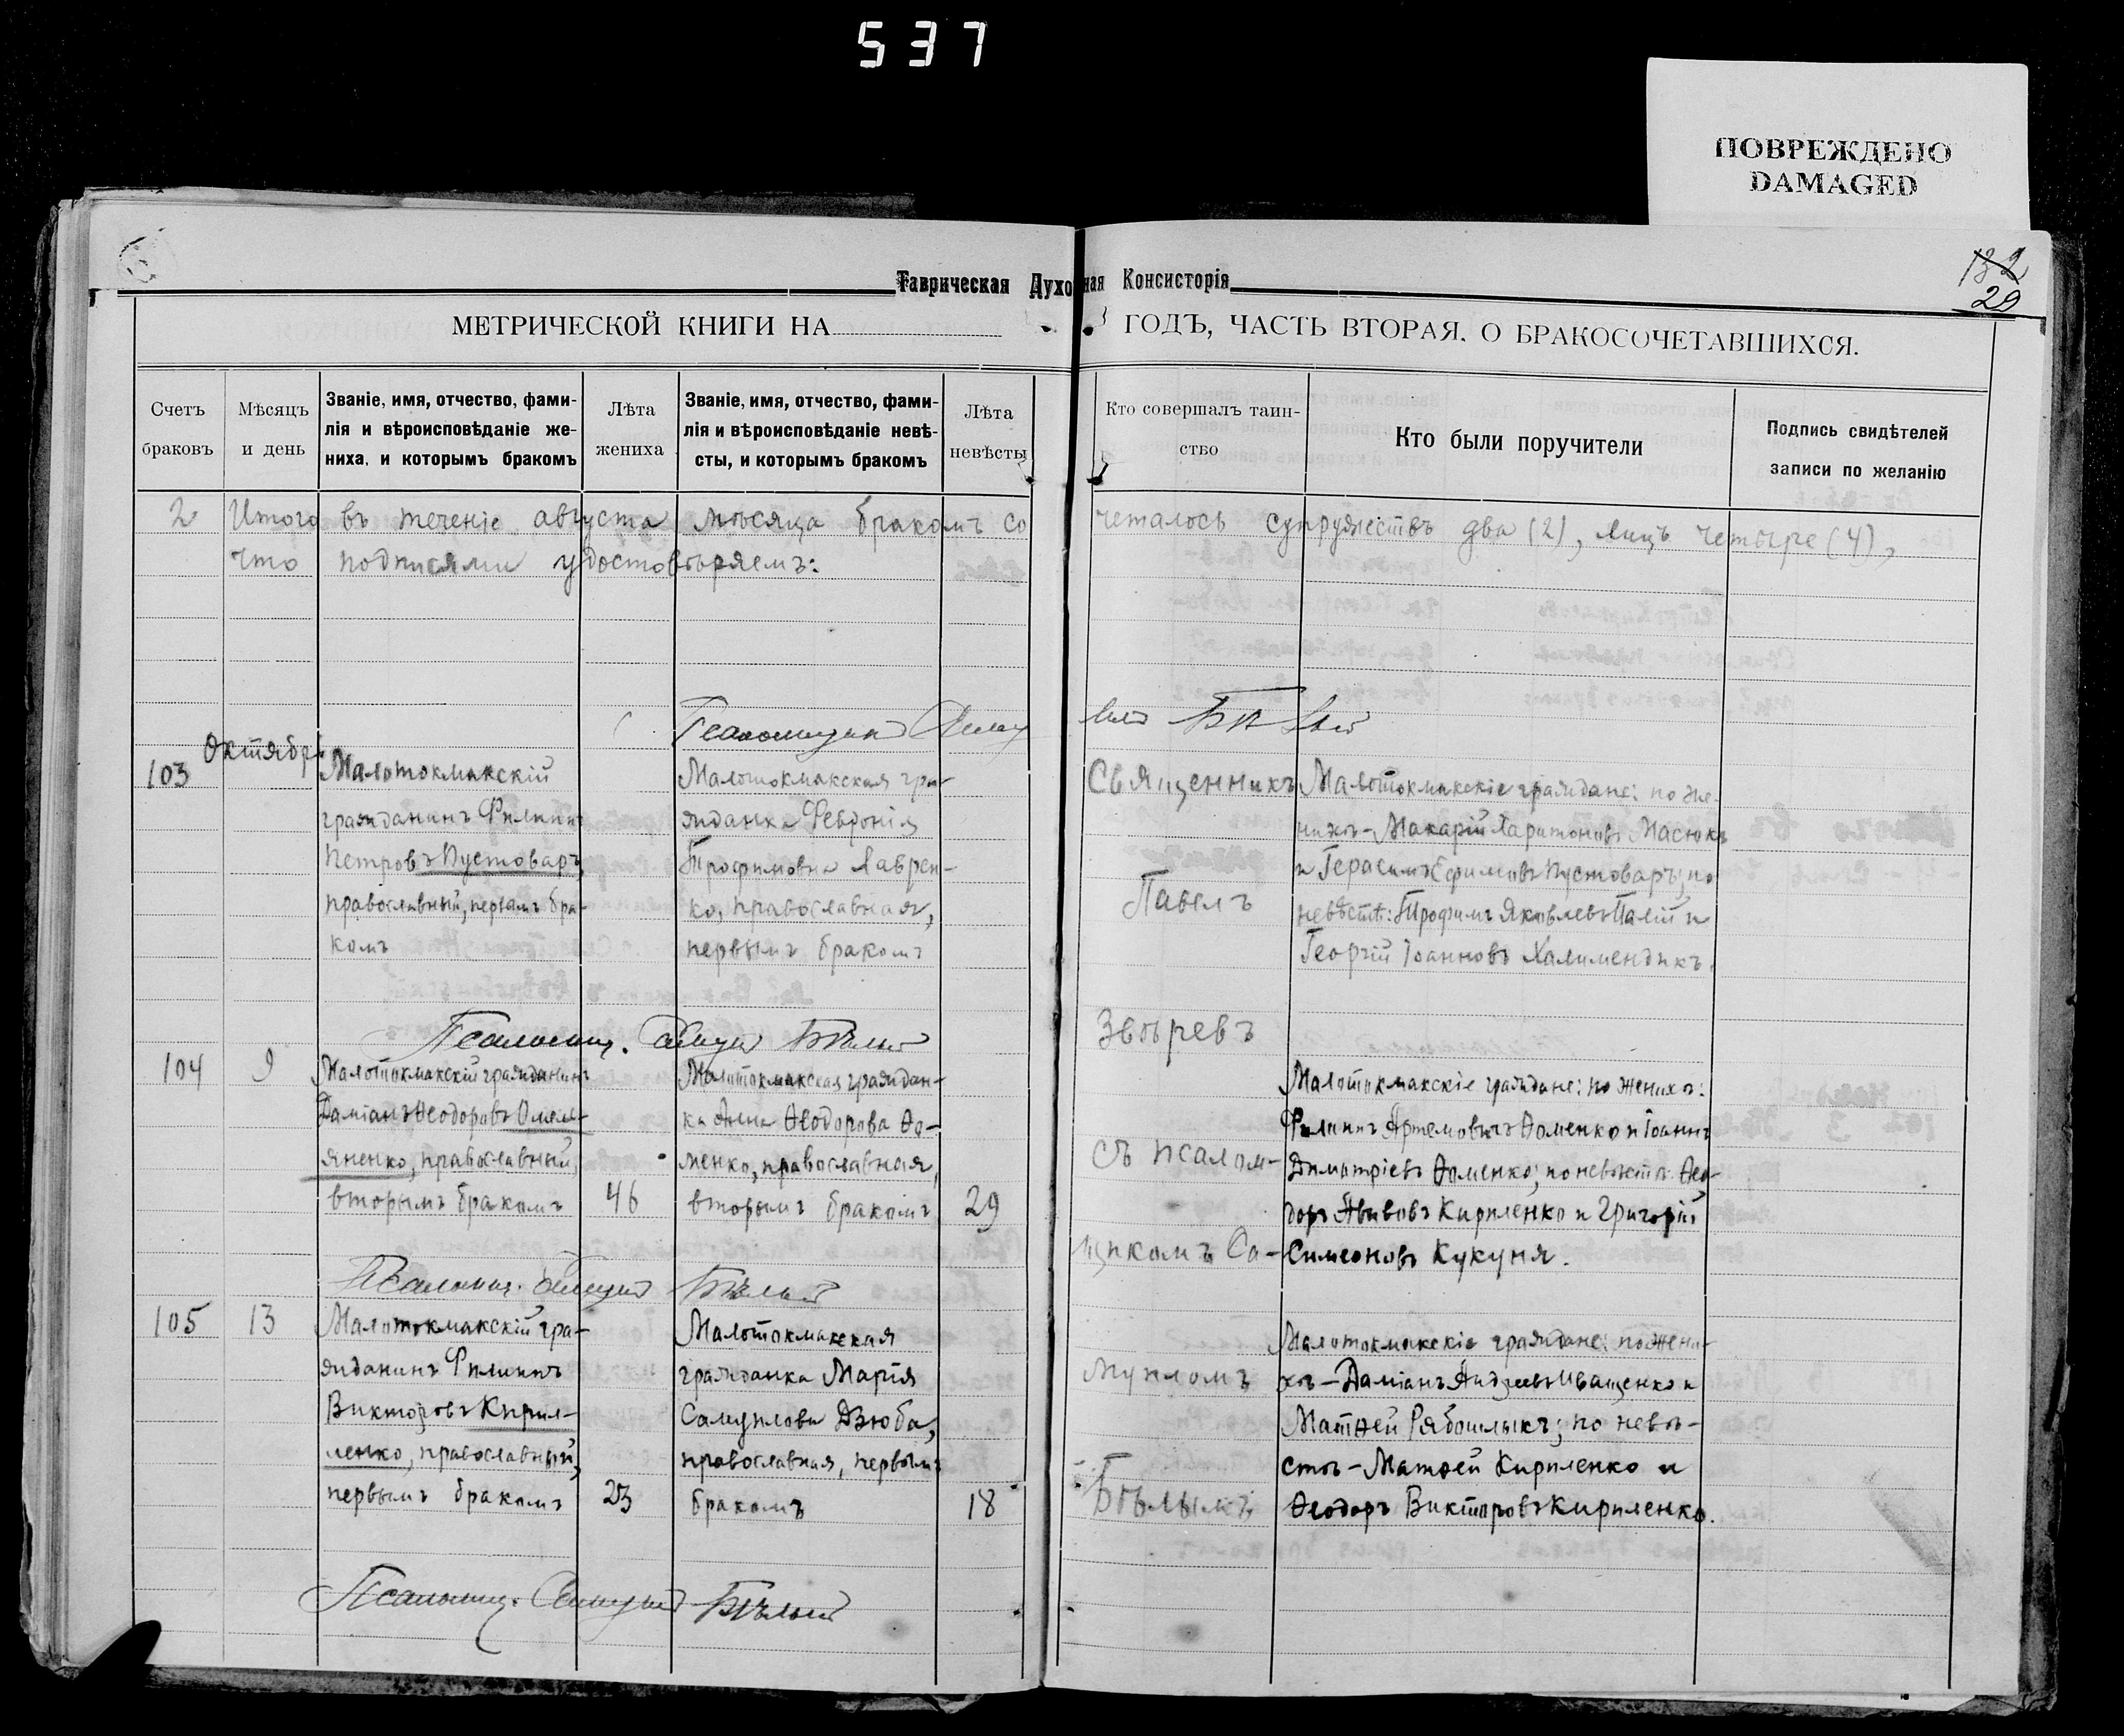 537
ПОВРЕЖДЕНО
DAMAGED
132
29
Таврическая Духовная Консисторія
МЕТРИЧЕСКОЙ КНИГИ НА ГОДЪ, ЧАСТЬ ВТОРАЯ. О БРАКОСОЧЕТАВШИХСЯ.
Счетъ браковъ
Мѣсяцъ и день
Званіе, имя, отчество, фами-
лія и вѣроисповѣданіе же-
ниха, и которымъ бракомъ
Лѣта жениха
Званіе, имя, отчество, фами-
лія и вѣроисповѣданіе невѣ-
сты, и которымъ бракомъ
Лѣта невѣсты
Кто совершалъ таин-
ство
Кто были поручители
Подпись свидѣтелей
записи по желанію
2 Итого въ теченіе августа мѣсяца бракомъ со четалось супружествъ два (2), лицъ четыре (4),
что подписями удостовѣряемъ:
Псаломщикъ Самуилъ Бѣлый
103
Октябрь
Малотокмакскій
гражданинъ Филиппъ
Петровъ Пустоваръ,
православный, первымъ бра-
комъ
Малотокмакская гра-
жданка Февронія
Трофимовна Лаврен-
ко, православная,
первымъ бракомъ
Священникъ
Павелъ
Звѣревъ
съ псалом-
щикомъ Са-
муиломъ
Бѣлымъ
Малотокмакскіе граждане: по же-
нихѣ - Макарій Харитоновъ Масюкъ
и Герасимъ Ефимовъ Пустоваръ; по
невѣстѣ: Трофимъ Яковлевъ Палій и
Георгій Іоанновъ Халимендикъ.
Псаломщ. Самуилъ Бѣлый
104
9
Малотокмакскій гражданинъ
Даміанъ Ѳеодоровъ Омель-
яненко, православный,
вторымъ бракомъ
46
Малотокмакская граждан-
ка Анна Ѳеодорова Ѳо-
менко, православная,
вторымъ бракомъ
29
Малотокмакскіе граждане: по женихѣ:
Филиппъ Артемовичъ Ѳоменко и Іоаннъ
Димитріевъ Ѳоменко; по невѣстѣ Ѳео-
доръ Авивовъ Кириленко и Григорій
Симеоновъ Кукуня.
Псаломщ. Самуилъ Бѣлый
105
13
Малотокмакскій гра-
жданинъ Филиппъ
Викторовъ Кирил-
ленко, православный,
первымъ бракомъ
23
Малотокмакская
гражданка Марія
Самуилова Дзюба,
православная, первымъ
бракомъ
18
Малотокмакскіе граждане: по жени-
хѣ - Даміанъ Андреевъ Иващенко и
Матѳей Рябошлыкъ; по невѣ-
стѣ - Матѳей Кириленко и
Ѳеодоръ Викторовъ Кириленко.
Псаломщ. Самуилъ Бѣлый